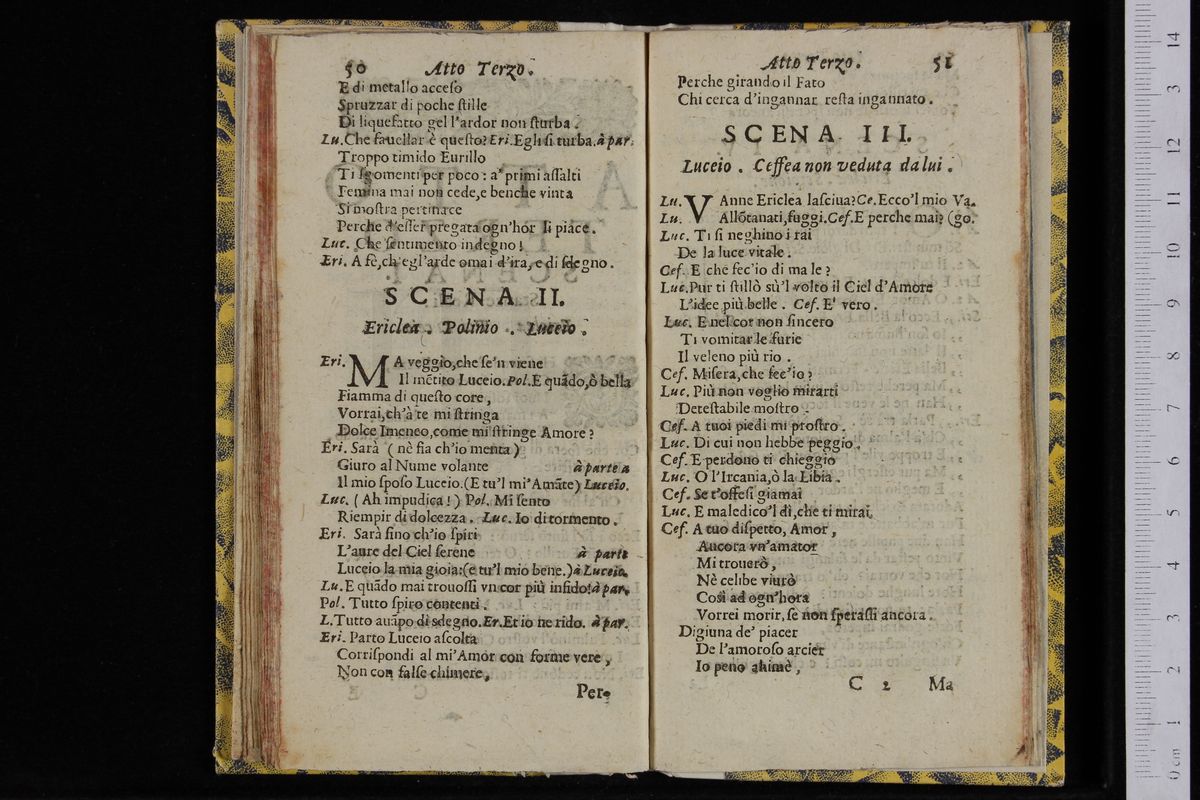 50 Atto Terzo.
E di metallo acceſo
Spruzzar di poche ſtille
Di liquefatto gel l'ardor non ſturba.
Lu. Che fauellar è queſto? Eri. Egli ſi turba. à par.
Troppo timido Eurillo
Ti ſgomenti per poco: a' primi aſſalti
Femina mai non cede, e benche vinta
Si moſtra pertinace
Perche d'eſſer pregata ogn'hor li piace.
Luc. Che ſentimento indegno!
Eri. A fè, ch'egl'arde omai d'ira, e di ſdegno.
SCENA II.
Ericlea. Polinio. Luceio.
Eri. MA veggio, che ſe'n viene
Il mētito Luceio. Pol. E quādo, ò bella
Fiamma di queſto core,
Vorrai, ch'à te mi ſtringa
Dolce Imeneo, come mi ſtringe Amore?
Eri. Sarà (nè fia ch'io menta)
Giuro al Nume volante à parte a
Il mio ſpoſo Luceio. (E tu'l mi'Amāte) Luceio.
Luc. (Ah impudica!) Pol. Mi ſento
Riempir di dolcezza. Luc. Io di tormento.
Eri. Sarà ſino ch'io ſpiri
L'aure del Ciel ſerene à parte
Luceio la mia gioia: (e tu'l mio bene.) à Luceio.
Lu. E quādo mai trouoſſi vn cor più infido! à par.
Pol. Tutto ſpiro contenti.
L. Tutto auāpo di sdegno. Er. Et io ne rido. à par.
Eri. Parto Luceio aſcolta
Corriſpondi al mi'Amor con forme vere,
Non con falſe chimere,
Per-
Atto Terzo. 51
Perche girando il Fato
Chi cerca d'ingannar reſta ingannato.
SCENA III.
Luceio. Ceffea non veduta da lui.
Lu. VAnne Ericlea laſciua? Ce. Ecco'l mio Va.
Lu. Allōtanati, fuggi. Cef. E perche mai? (go.
Luc. Ti ſi neghino i rai
De la luce vitale.
Cef. E che fec'io di male?
Luc. Pur ti ſtillò sù'l volto il Ciel d'Amore
L'idee più belle. Cef. E' vero.
Luc. E nel cor non ſincero
Ti vomitar le furie
Il veleno più rio.
Cef. Miſera, che fec'io?
Luc. Più non voglio mirarti
Deteſtabile moſtro.
Cef. A tuoi piedi mi proſtro.
Luc. Di cui non hebbe peggio.
Cef. E perdono ti chieggio
Luc. O l'Ircania, ò la Libia.
Cef. Se t'offeſi giamai
Luc. E maledico'l dì, che ti mirai.
Cef. A tuo diſpetto, Amor,
Ancora vn'amator
Mi trouerò,
Nè celibe viurò
Così ad ogn'hora
Vorrei morir, ſe non ſperaſſi ancora.
Digiuna de' piacer
De l'amoroſo arcier
Io peno ahimè,
C 2 Ma